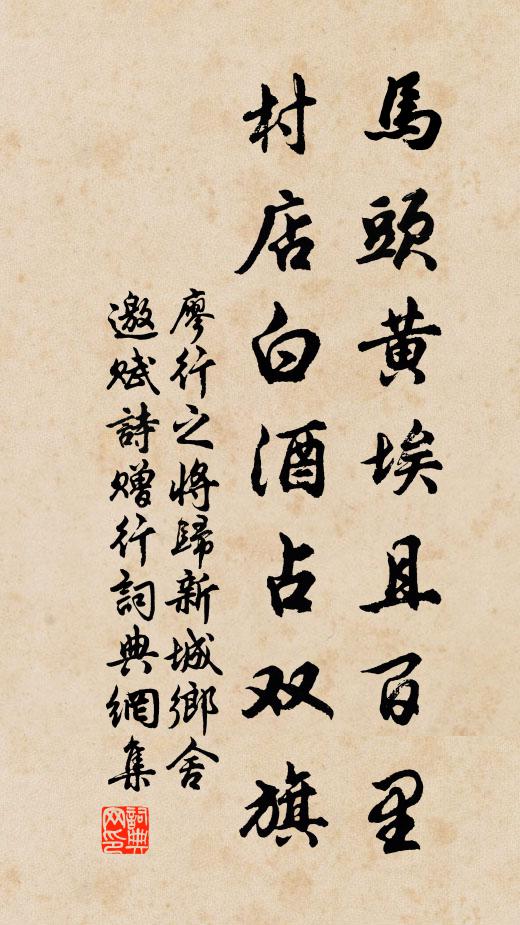 馬頭黄埃且百里
村店白酒占双旗
廖行之將歸新城鄉舍
邀赋詩贈行詞典網集
詞典网印